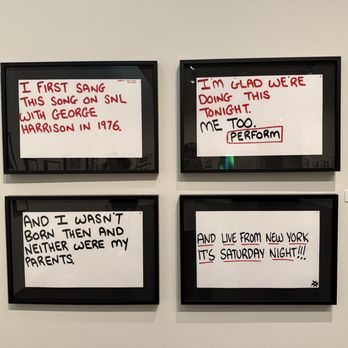 I FIRST SANG
THIS SONG ON SNL
WITH GEORGE
HARRISON IN 1976.
I'M GLAD WE'RE
DOING THIS
TONIGHT.
ME TOO.
PERFORM
AND I WASN'T
BORN THEN AND
NEITHER WERE MY
PARENTS.
AND LIVE FROM NEW YORK
IT'S SATURDAY NIGHT!!!